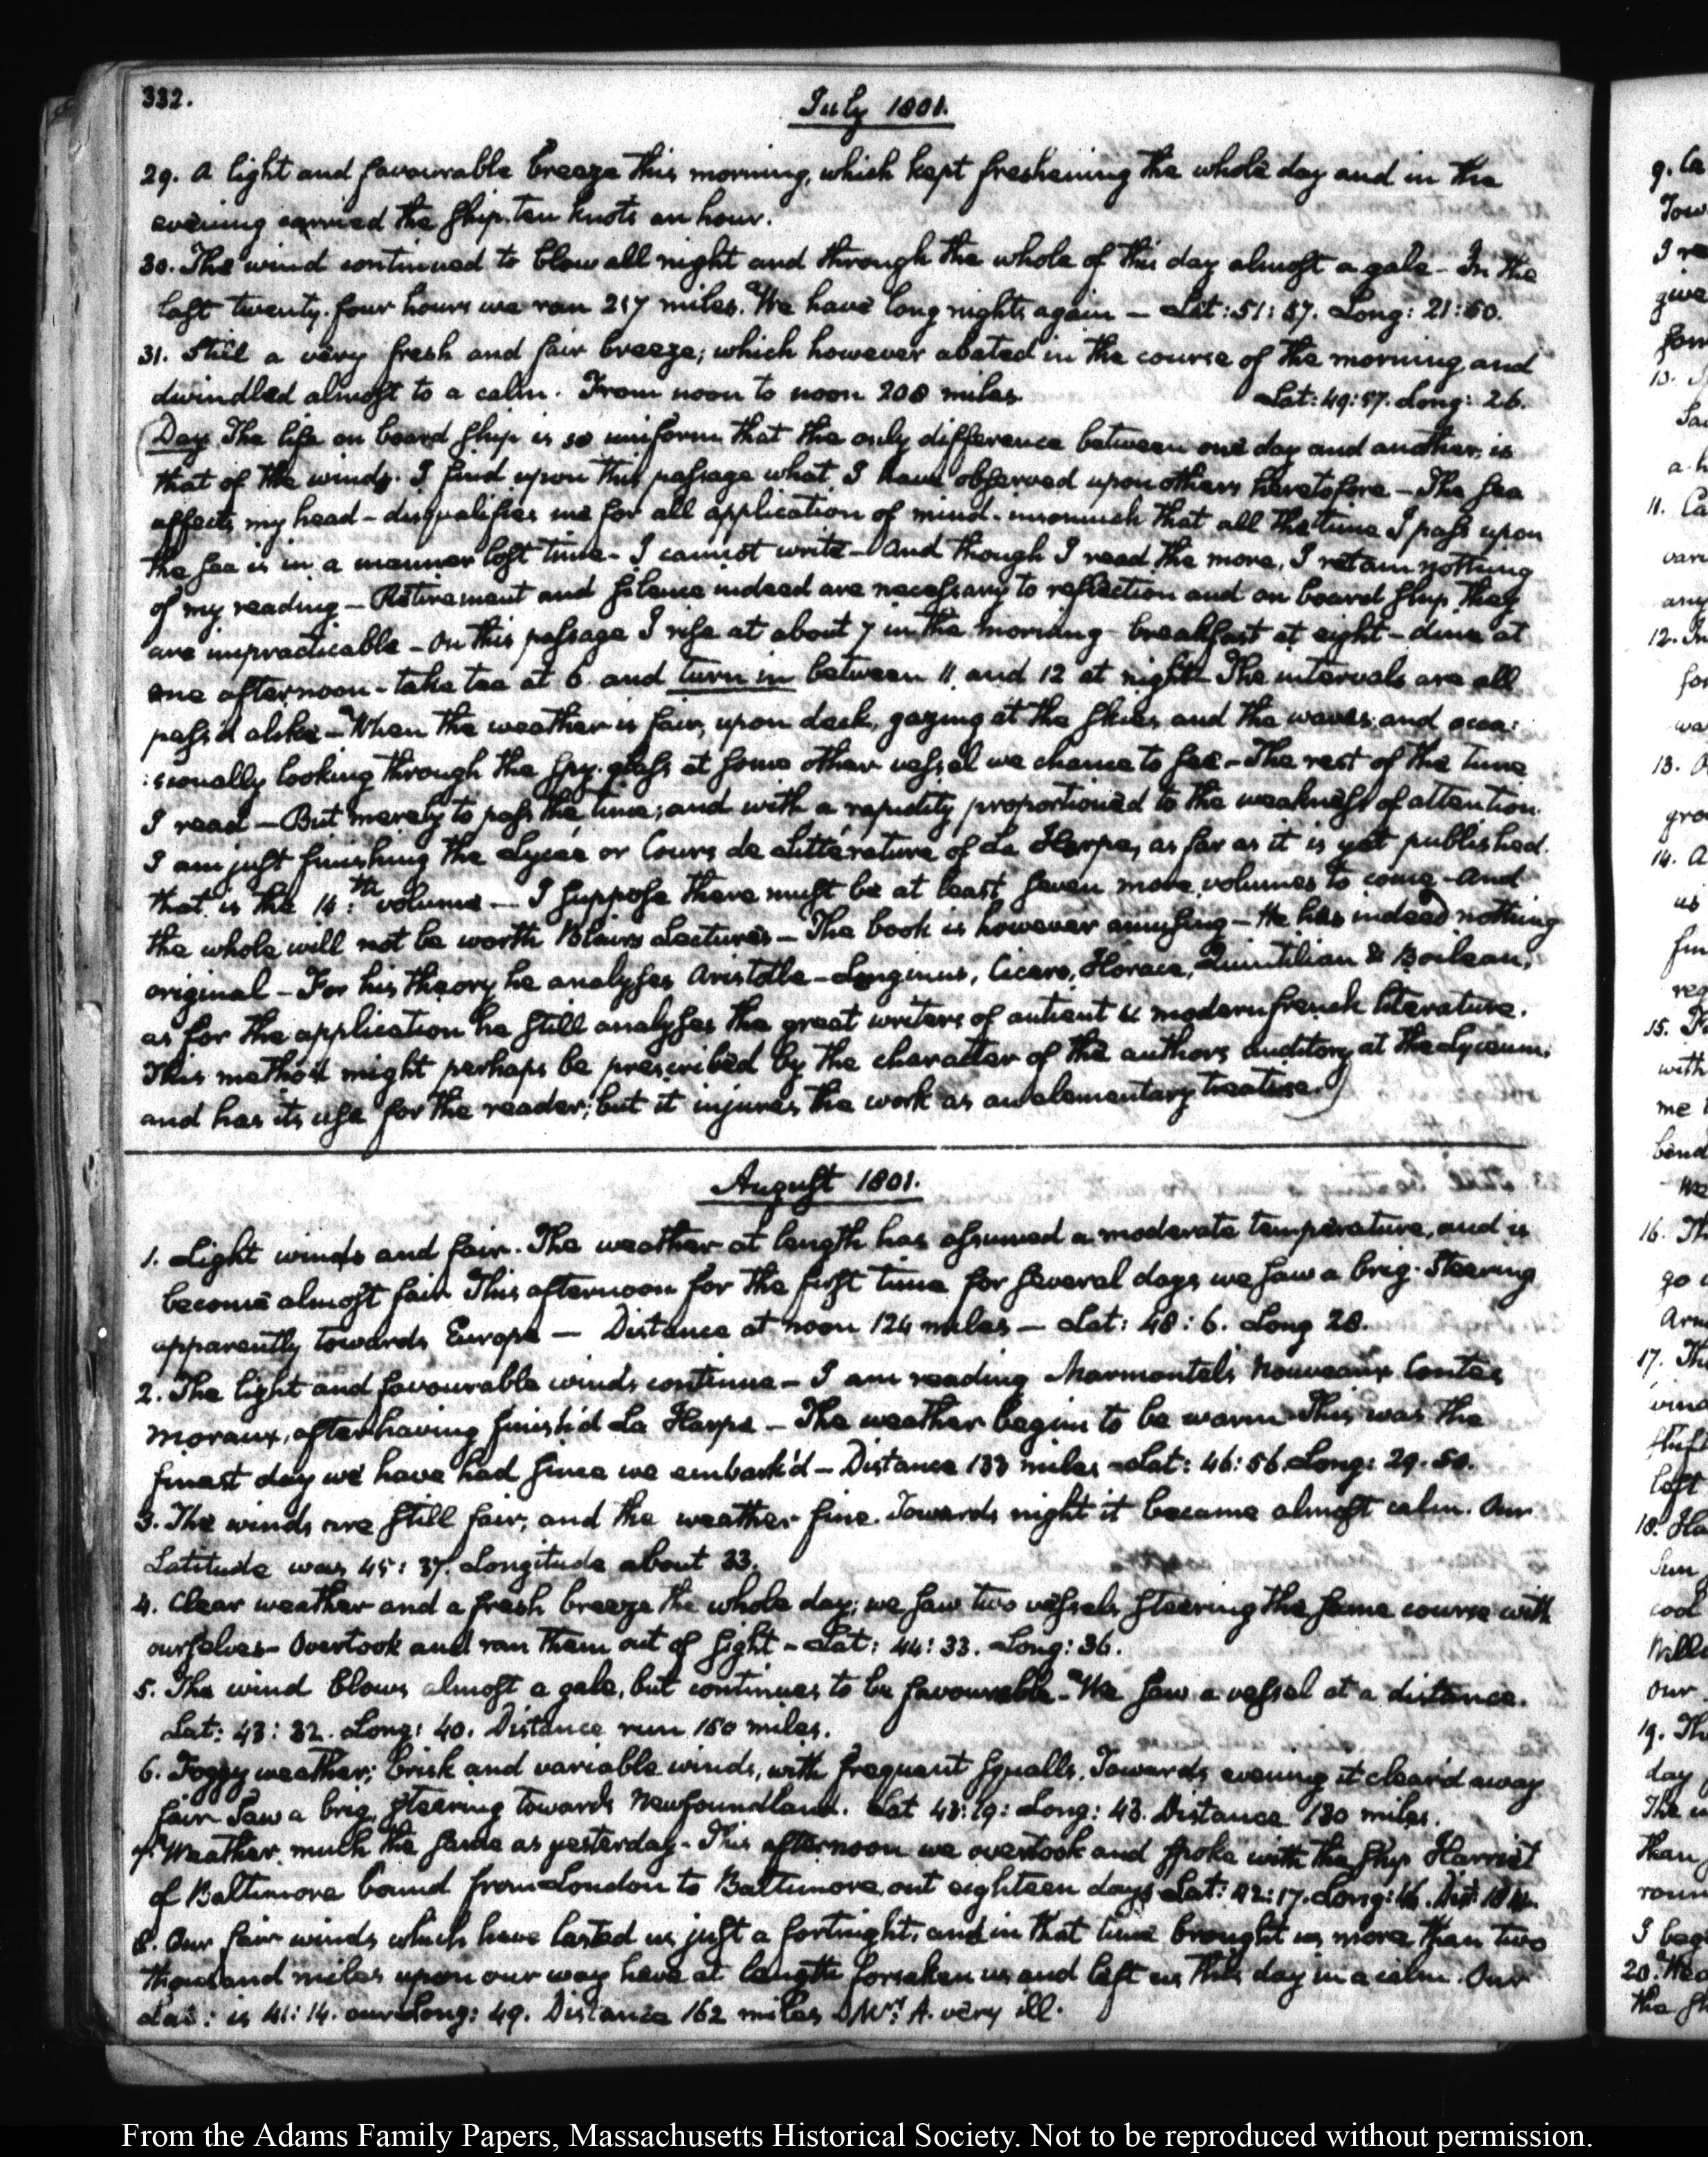 332.
July 1801.
29. A light and favourable breeze this morning, which kept freshening the whole day and in the
evening carried the ship ten knots an hour.
30. The wind continued to blow all night and through the whole of this day almost a gale - In the
last twenty-four hours we ran 217 miles. We have long nights again - Lat: 51: 57. Long: 21:50.
31. Still a very fresh and fair breeze; which however abated in the course of the morning and
dwindled almost to a calm. From noon to noon 208 miles Lat: 49:57. Long: 26.
(Day. The life on board ship is so uniform that the only difference between one day and another, is
that of the winds. I find upon this passage what I have observed upon others heretofore - The sea
affects my head - disqualifies me for all application of mind. insomuch that all the time I pass upon
the sea is in a manner lost time - I cannot write - And though I read the more, I retain nothing
of my reading - Retirement and silence indeed are necessary to reflection and on board ship they
are impracticable - On this passage I rise at about 7 in the morning - breakfast at eight - dine at
one afternoon - take tea at 6. and turn in between 11 and 12 at night - The intervals are all
pass'd alike - When the weather is fair, upon deck, gazing at the skies and the waves, and occa:
:sionally looking through the spy-glass at some other vessel we chance to see - The rest of the time
I read - But merely to pass the time; and with a rapidity proportioned to the weakness of attention.
I am just finishing the Lycée or Cours de Littérature of La Harpe, as far as it is yet published.
that is the 14:th volume - I suppose there must be at least seven more volumes to come - And
the whole will not be worth Blairs Lectures - The book is however amusing - He has indeed nothing
original - For his theory he analyses Aristotle - Longinus, Cicero, Horace, Quintilian & Boileau;
as for the application he still analyses the great writers of antient & modern french literature.
This method might perhaps be prescribed by the character of the authors auditory at the Lyceum;
and has its use for the reader; but it injures the work as an elementary treatise.)
August 1801.
1. Light winds and fair. The weather at length has assumed a moderate temperature, and is
become almost fair. This afternoon for the first time for several days we saw a brig. Steering
apparently towards Europe - Distance at noon 124 miles - Lat: 48: 6. Long 28.
2. The light and favourable winds continue - I am reading Marmontels Nouveaux Contes
Moraux, after having finish'd La Harpe - The weather begins to be warm This was the
finest day we have had since we embark'd - Distance 133 miles - Lat: 46: 56. Long: 29. 50.
3. The winds are still fair, and the weather fine. Towards night it became almost calm. Our
Latitude was 45: 37. Longitude about 33.
4. Clear weather and a fresh breeze the whole day; we saw two vessels steering the same course with
ourselves - Overtook and ran them out of sight - Lat: 44: 33. Long: 36.
5. The wind blows almost a gale, but continues to be favourable - We saw a vessel at a distance.
Lat: 43: 32. Long: 40. Distance run 180 miles.
6. Foggy weather; brisk and variable winds, with frequent squalls. Towards evening it clear'd away
fair Saw a brig, steering towards Newfoundland. Lat 43: 19: Long: 43. Distance 130 miles.
7. Weather much the same as yesterday - This afternoon we overtook and spoke with the ship Harriet
of Baltimore bound from London to Baltimore, out eighteen days Lat: 42: 17. Long: 46. Dist:
8. Our fair winds which have lasted us just a fortnight, and in that time brought us more than two
thousand miles upon our way have at length forsaken us and left us this day in a calm. Our
Lat: is 41: 14. our Long: 49. Distance 162 miles Mrs: A. very ill.
From the Adams Family Papers, Massachusetts Historical Society. Not to be reproduced without permission.